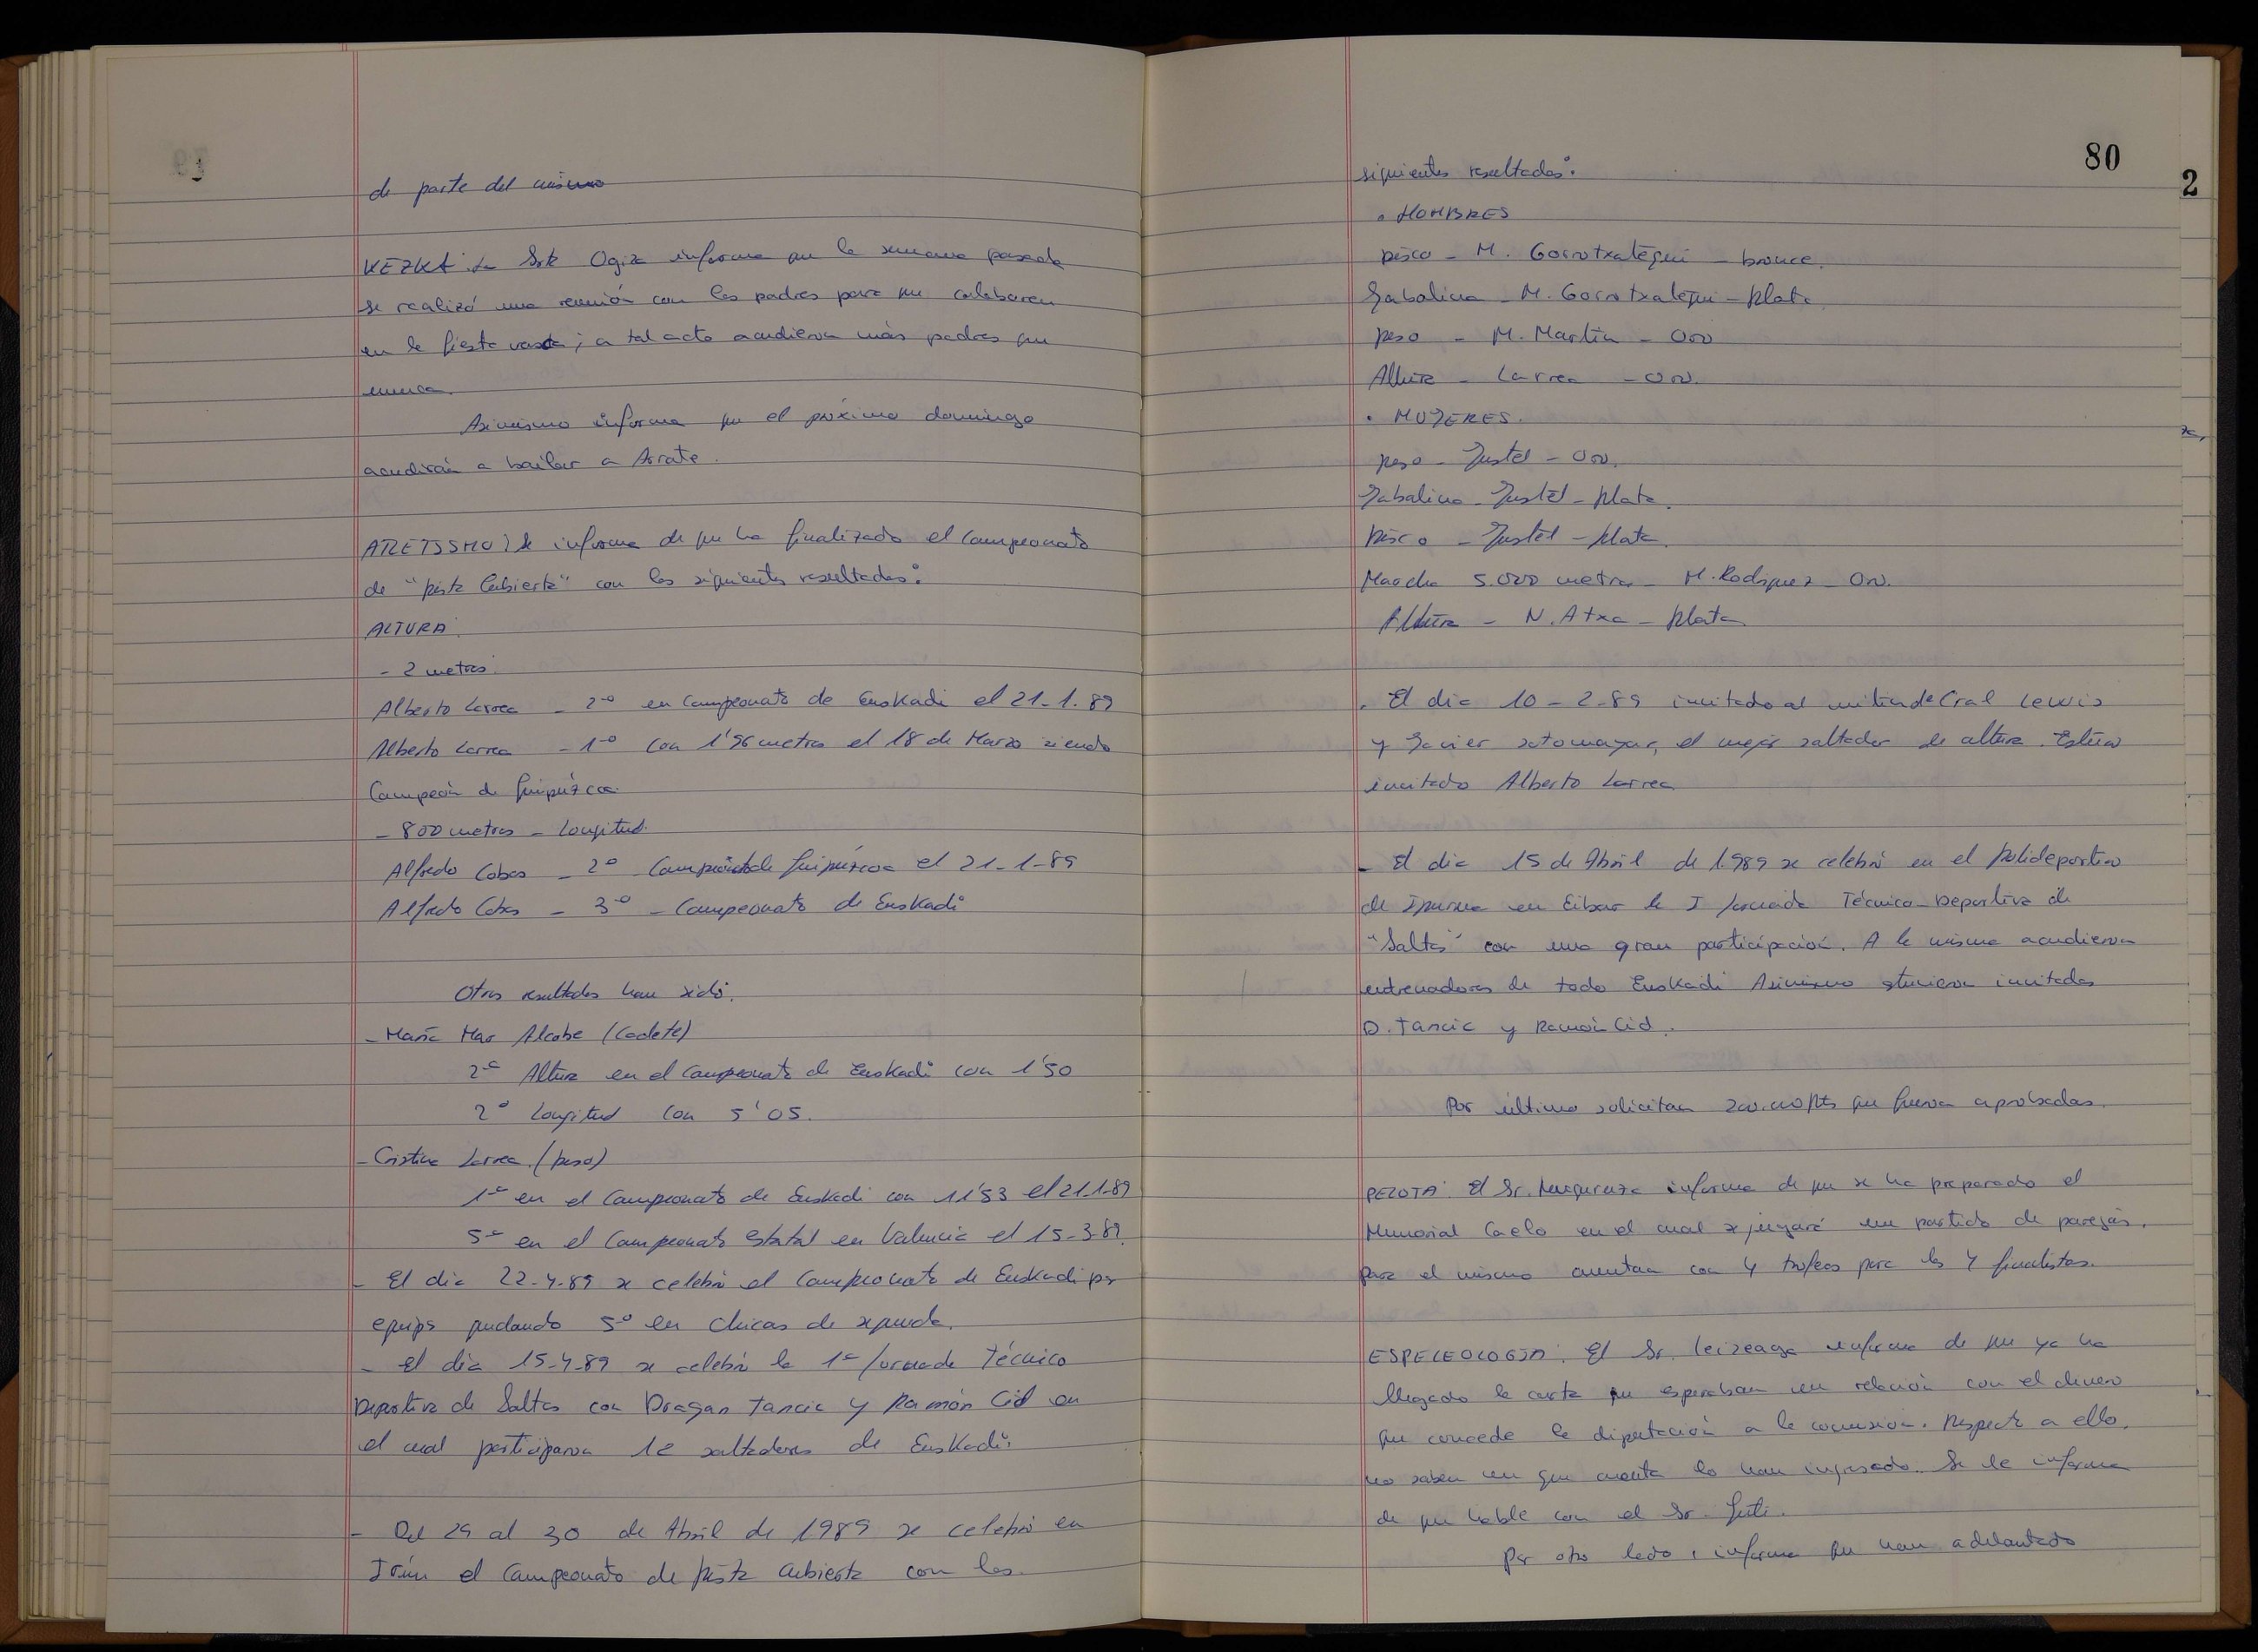 de parte del mismo
KEZKA: La Srta Ogiza informa que la semana pasada
se realizó una reunión con los padres para que colaboren
en la fiesta vasca; a tal acto acudieron más padres que
nunca.
Asimismo informa que el próximo domingo
acudirán a bailar a Arrate.
ATLETISMO: Se informa de que ha finalizado el Campeonato
de "pista Cubierta" con los siguientes resultados:
ALTURA:
- 2 metros:
Alberto Larrea - 2º en Campeonato de Euskadi el 21-1-89
Alberto Larrea - 1º con 1'96 metros el 18 de Marzo siendo
Campeón de Guipúzcoa.
- 800 metros - Longitud.
Alfredo Cobos - 2º Campeonato de Guipúzcoa el 21-1-89
Alfredo Cobos - 3º - Campeonato de Euskadi
Otros resultados han sido:
- María Mar Alcobe (Cadete)
2ª Altura en el Campeonato de Euskadi con 1'50
2ª Longitud con 5'05.
- Cristina Larrea (peso)
1ª en el Campeonato de Euskadi con 11'53 el 21-1-89
5ª en el Campeonato Estatal en Valencia el 15-3-89.
- El día 22-4-89 se celebró el Campeonato de Euskadi por
equips quedando 5º en chicas de segunda.
- El día 15-4-89 se celebró la 1ª Jornada Técnico
Deportiva de Saltos con Dragan Tancic y Ramón Cid en
el cual participaron 12 saltadores de Euskadi.
- Del 29 al 30 de Abril de 1989 se celebró en
Irún el Campeonato de pista cubierta con los
80
2
siguientes resultados:
• HOMBRES
Disco - M. Gorrotxategui - bronce.
Jabalina - M. Gorrotxategui - plata
peso - M. Martín - Oro
Altura - Larrea - Oro.
• MUJERES.
peso - Justel - Oro.
Jabalina - Justel - plata.
Disco - Justel - plata.
Marcha 5.000 metros - M. Rodriguez - Oro.
Altura - N. Atxa - plata
. El día 10-2-89 invitado al mitin de Cral Lewis
y Javier Sotomayor, el mejor saltador de altura. Estuvo
invitado Alberto Larrea
- El día 15 de Abril de 1.989 se celebró en el Polideportivo
de Ipurua en Eibar la I Jornada Técnico-Deportiva de
"Saltos" con una gran participación. A la misma acudieron
entrenadores de todo Euskadi Asimismo estuvieron invitados
D. Tancic y Ramón Cid.
Por último solicitan 200.000 pts que fueron aprobadas.
PELOTA: El Sr. informa de que se ha preparado el
Memorial Caelo en el cual se jugará un partido de parejas.
para el mismo cuentan con 4 trofeos para los 4 finalistas.
ESPELEOLOGIA: El Sr. Leizeaga informa de que ya ha
llegado la carta que esperaban en relación con el dinero
que concede la diputación a la comisión. Respecto a ello,
no saben en que cuenta lo han ingresado. Se le informa
de que hable con el Sr. Guti.
Por otro lado, informa que han adelantado